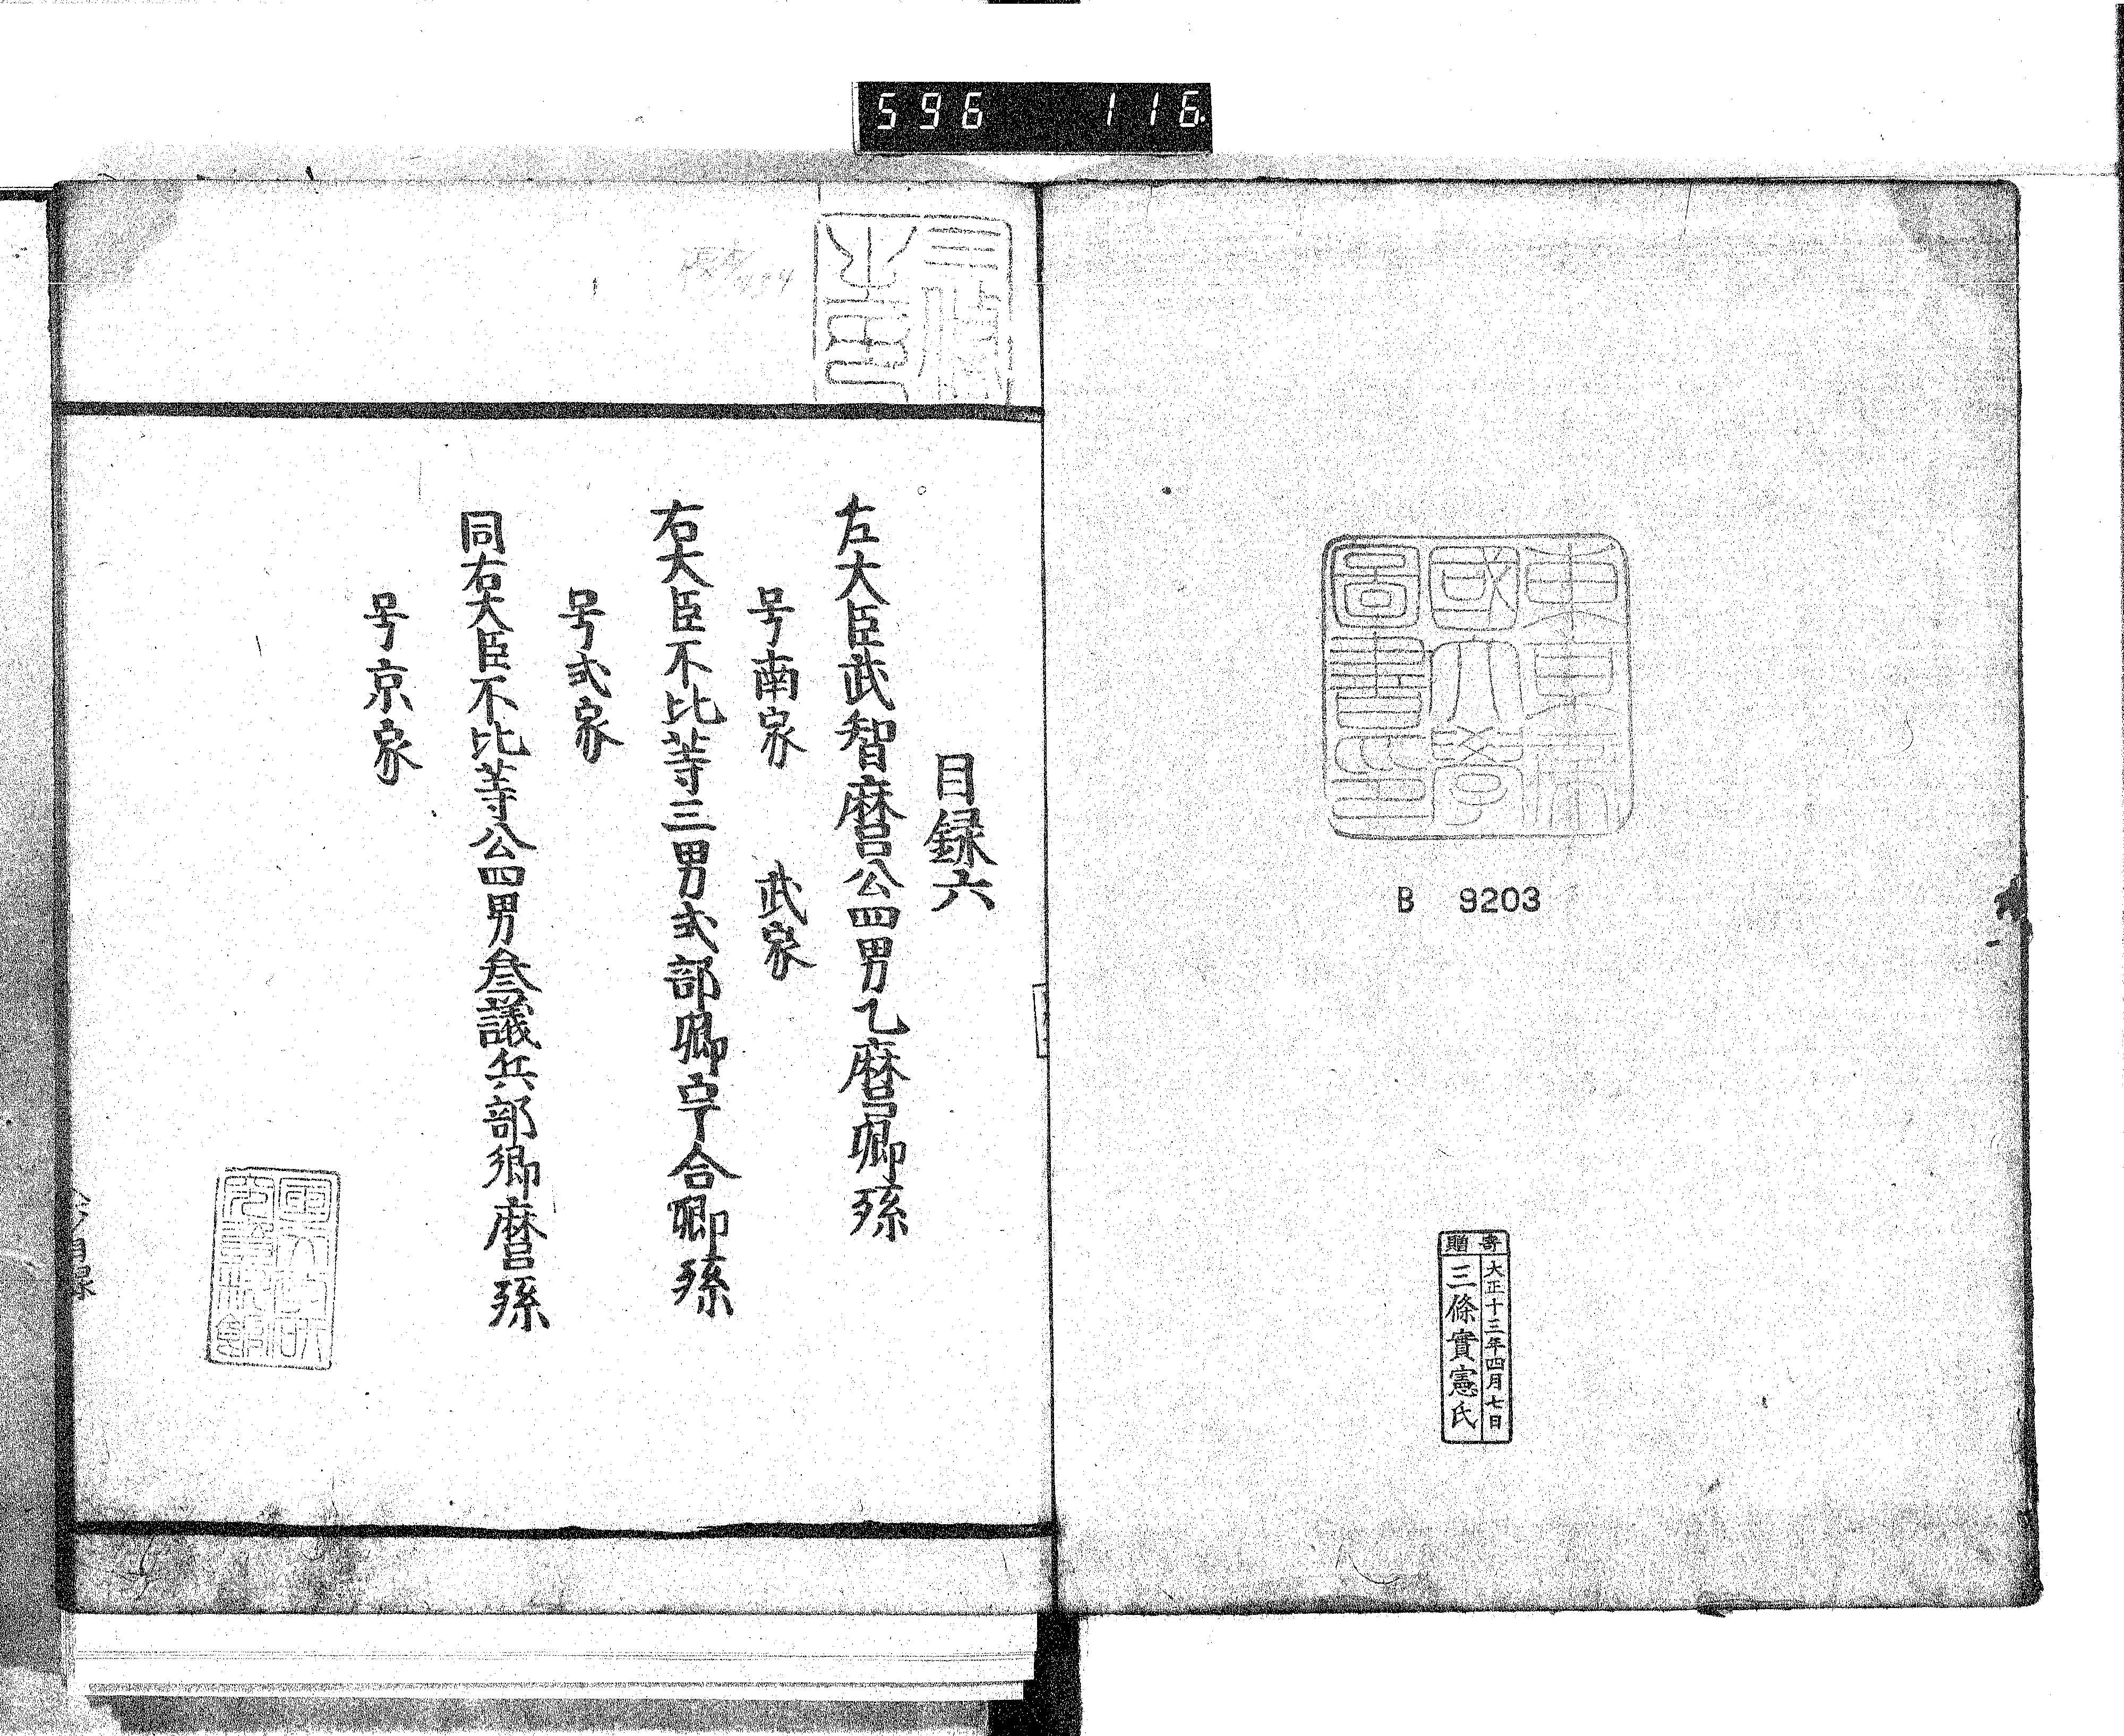 596 116
東京帝
國大學
圖書印
B 9203
寄贈
大正十三年四月七日
三條實憲氏
目録六
左大臣武智麿公四男乙麿卿孫
号南家 武家
右大臣不比等三男式部卿宇合卿孫
号式家
同右大臣不比等公四男叄議兵部卿麿孫
号京家
目録